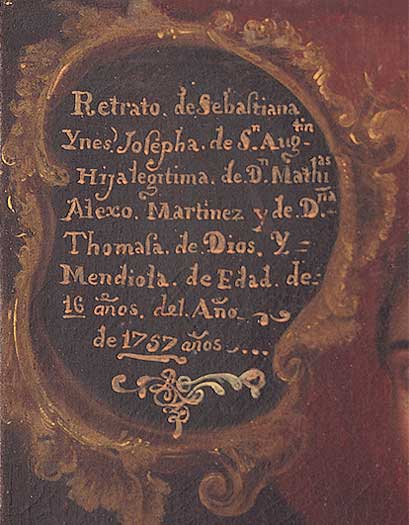 Retrato. de Sebastiana
Ynes, Josepha. de Sn. Augtin
Hija legitima. de Dn. Mathias
Alexo. Martinez y de Dña
Thomasa. de Dios. Y=
Mendiola. de Edad. de=
16 años. del. Año
de 1757 años....